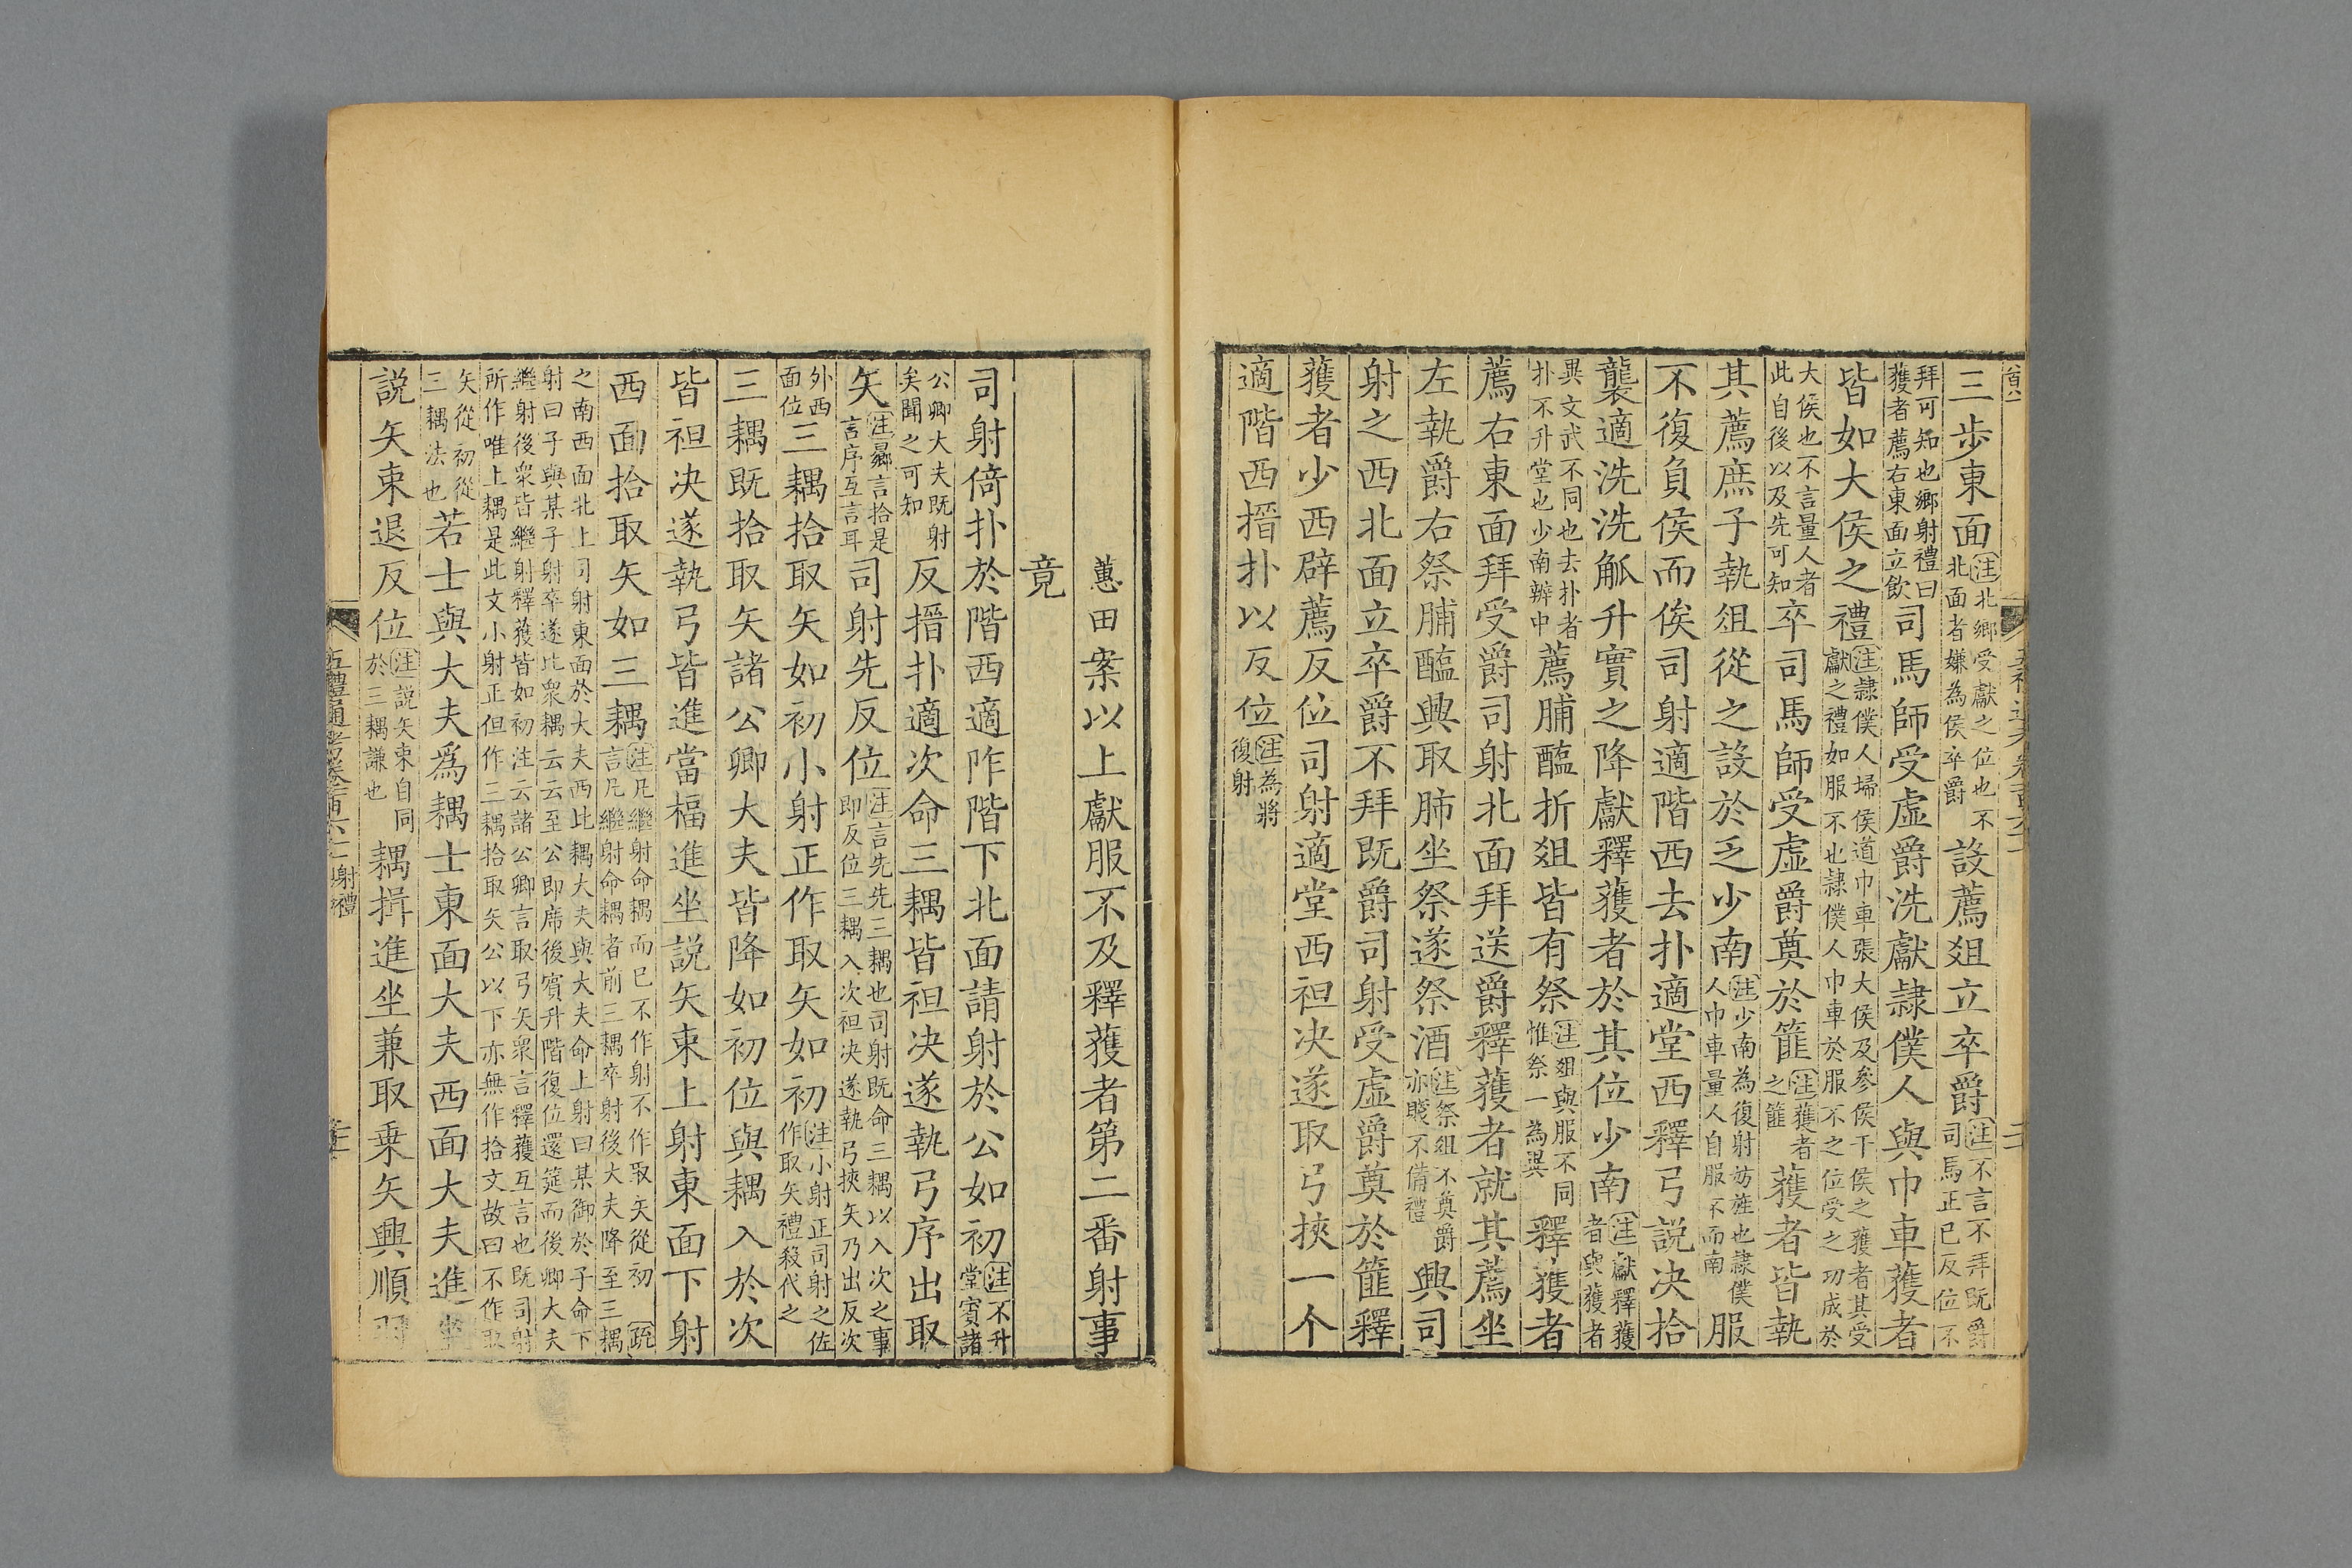 三步東面注北鄉受獻之位也不北面者嫌為侯卒爵設薦俎立卒爵注不言不拜既爵司馬正已反位不
拜可知也鄉射禮曰獲者薦右東面立飲司馬師受虛爵洗獻隷僕人與巾車獲者
皆如大侯之禮注隷僕人埽侯道巾車張大侯及參侯干侯之獲者其受獻之禮如服不也隷僕人巾車於服不之位受之功成於
大侯也不言量人者此自後以及先可知卒司馬師受虛爵奠於篚注獲者之篚獲者皆執
其薦庶子執俎從之設於乏少南注少南為復射妨旌也隷僕人巾車量人自服不而南服
不復負侯而俟司射適階西去扑適堂西釋弓説决拾
襲適洗洗觚升實之降獻釋獲者於其位少南注獻釋獲者與獲者
異文武不同也去扑者扑不升堂也少南辨中薦脯醢折俎皆有祭注俎與服不同惟祭一為異釋獲者
薦右東面拜受爵司射北面拜送爵釋獲者就其薦坐
左執爵右祭脯醢興取肺坐祭遂祭酒注祭俎不奠爵亦賤不備禮興司
射之西北面立卒爵不拜既爵司射受虛爵奠於篚釋
獲者少西辟薦反位司射適堂西袒决遂取弓挾一个
適階西搢扑以反位注為將復射
蕙田案以上獻服不及釋獲者第二番射事
竟
司射倚扑於階西適阼階下北面請射於公如初注不升堂賓諸
公卿大夫既射矣聞之可知反搢扑適次命三耦皆袒决遂執弓序出取
矢注曏言拾是言序互言耳司射先反位注言先先三耦也司射既命三耦以入次之事即反位三耦入次袒决遂執弓挾矢乃出反次
外西面位三耦拾取矢如初小射正作取矢如初注小射正司射之佐作取矢禮殺代之
三耦既拾取矢諸公卿大夫皆降如初位與耦入於次
皆袒决遂執弓皆進當楅進坐説矢束上射東面下射
西面拾取矢如三耦注凡繼射命耦而已不作射不作取矢從初疏言凡繼射命耦者前三耦卒射後大夫降至三耦
之南西面北上司射東面於大夫西北耦大夫與大夫命上射曰某御於子命下射曰子與某子射卒遂比衆耦云云至公即席後賓升階復位還筵而後卿大夫
繼射後衆皆繼射釋獲皆如初注云諸公卿言取弓矢衆言釋獲互言也既司射所作唯上耦是此文小射正但作三耦拾取矢公以下亦無作拾文故曰不作取
矢從初從三耦法也若士與大夫爲耦士東面大夫西面大夫進坐
説矢束退反位注説矢束自同於三耦謙也耦揖進坐兼取乗矢興順羽